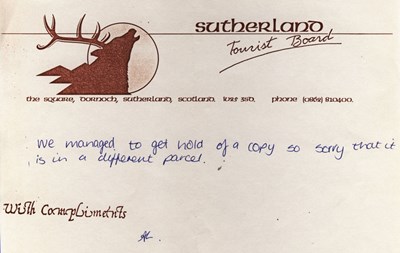 SUTHERLAND
Tourist Board
the square, dornoch, sutherland, scotland. IV25 3SD. phone (0862) 810400.
We managed to get hold of a copy so sorry that it
is in a different parcel.
With Compliments